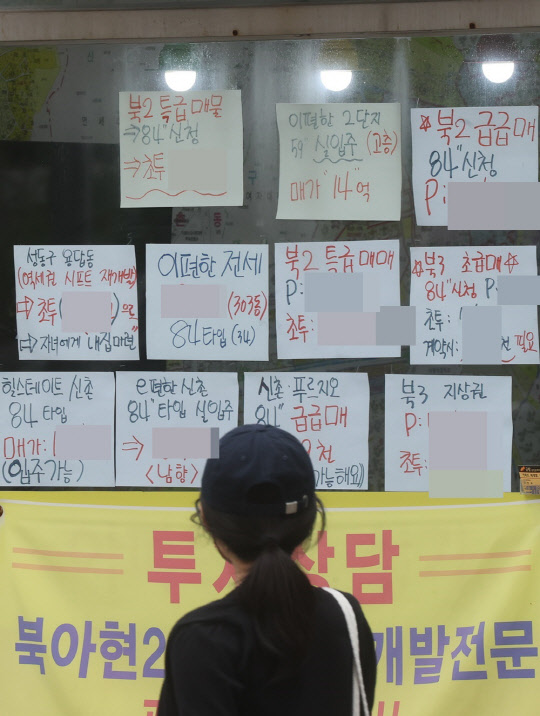 북2 특급매물
⇒84"신청
⇒초투
이편한 2단지
59" 실입주 (고층)
매가 "14"억
☆북2 급급매
84"신청
P:
성동구 용답동
(역세권 시프트 재개발)
⇒초투( )으로
⇒자녀에게 "내집마련"
이편한 전세
(303동)
84타입 (34)
북2 특급매매
P:
초투:
☆북3 초급매☆
84"신청 P:
초투:
계약시: 천 필요
힐스테이트 신촌
84타입
매가:
(입주가능)
e편한신촌
84"타입 실입주
⇒
<남향>
신촌:푸르지오
84" 급급매
천
가능해요)
북3 지상권
P:
초투:
투 상담
북아현2 개발전문